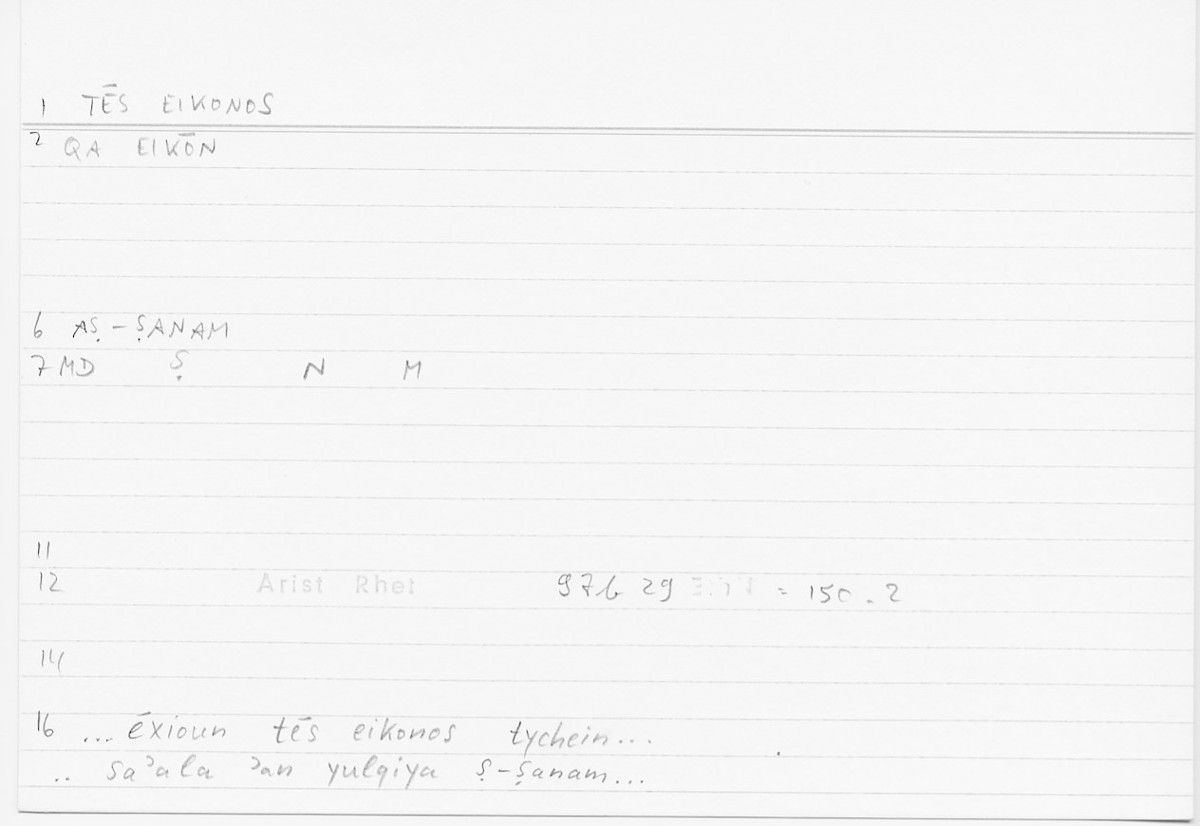 1 TĒS EIKONOS
2 QA EIKŌN
6 AṢ-ṢANAM
7 MD Ṣ N M
11
12 Arist Rhet 97b 29 = 150.2
14
16 ... ēxioun tēs eikonos tychein...
.. saʾala ʾan yulqiya ṣ-ṣanam...